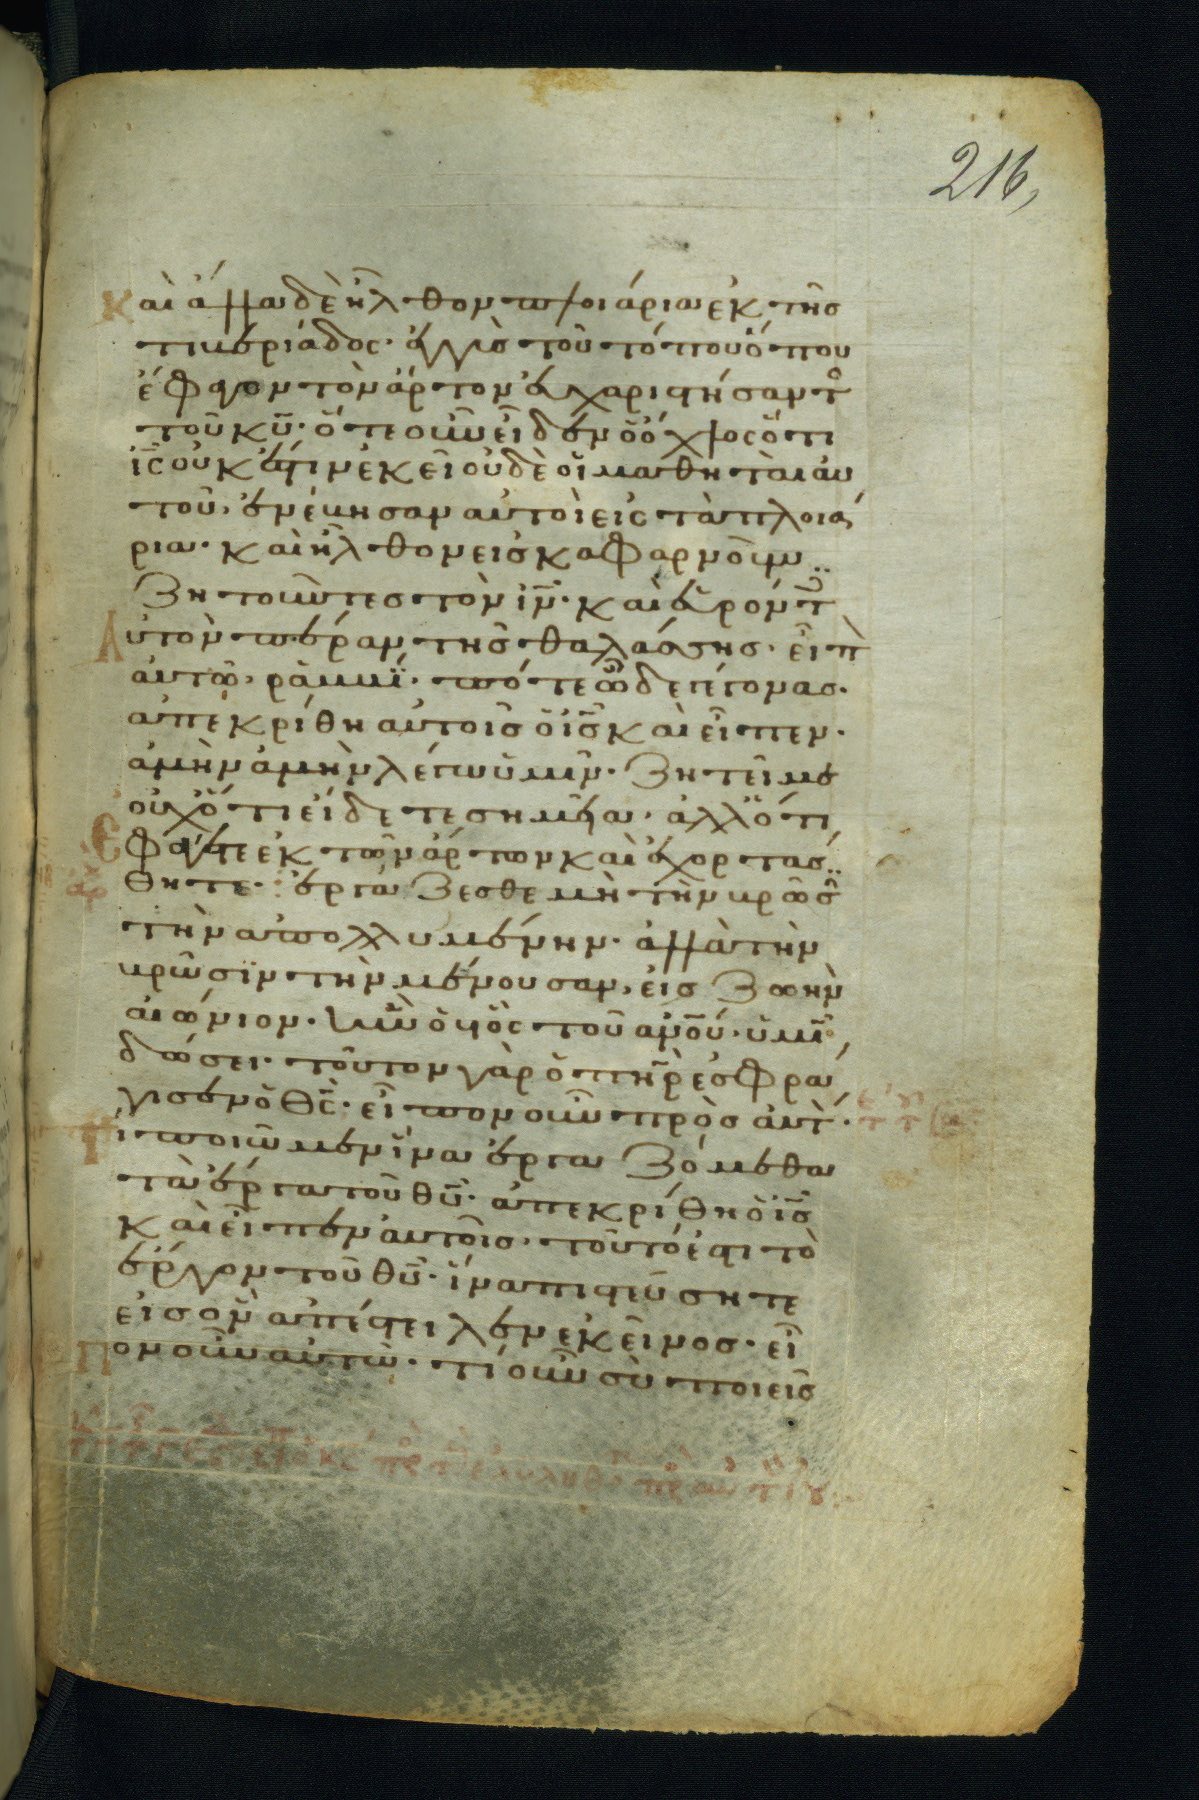 216,
Καὶ ἄλλα δὲ ἦλθον πλοιάρια ἐκ τῆς
τιβεριάδος· ἐγγὺς τοῦ τόπου ὅπου
ἔφαγον τὸν ἄρτον εὐχαριστήσαντ
τοῦ κ̅υ̅· ὅτε οὖν εἶδεν ὁ ὄχλος ὅτι
ι̅ς̅ οὐκ ἔστιν ἐκεῖ οὐδὲ οἱ μαθηταὶ αυ
τοῦ, ἐνέβησαν αὐτοὶ εἰς τὰ πλοιά
ρια· καὶ ἦλθον εἰς καφαρναοὺμ
ζητοῦντες τὸν ι̅ν̅· καὶ εὑρόντ
Αὐτὸν πέραν τῆς θαλάσσης· εἶπ
αὐτῷ, ῥαββϊ· πότε ὧδε γέγονας·
ἀπεκρίθη αὐτοῖς ὁ ι̅ς̅ καὶ εἶπεν·
ἀμὴν ἀμὴν λέγω ὑμῖν· ζητεῖ με
οὐχ ὅτι εἴδετε σημεῖα· ἀλλ ὅτι
Ἐφάγετε ἐκ τῶν ἄρτων καὶ ἐχορτάσ
θητε· ἐργάζεσθε μὴ τὴν βρῶσ
τὴν ἀπολλυμένην· ἀλλὰ τὴν
βρῶσϊν τὴν μένουσαν, εἰς ζωὴν
αἰώνιον· ἣν ὁ υἱὸς τοῦ α̅ν̅ο̅υ̅· ὑμῖ
δώσει· τοῦτον γὰρ ὁ π̅η̅ρ̅ ἐσφρά
γισεν ὁ θ̅ς̅· εἶπον οὖν πρὸς αὐτ·
Τί ποιῶμεν ἵνα ἐργαζόμεθα
τὰ ἔργα τοῦ θ̅υ̅· ἀπεκρίθη ὁ ι̅ς̅
καὶ εἶπεν αὐτοῖς· τοῦτό ἐστι τὸ
ἔργον τοῦ θ̅υ̅· ἵνα πιστεύσητε
εἰς ὃν ἀπέστειλεν ἐκεῖνος· εἶ
Πον οὖν αὐτῷ· τί οὖν σὺ ποιεῖς